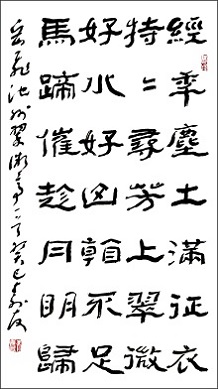 經年塵土滿征衣
特々尋芳上翠微
好水好山看不足
馬蹄催趁月明歸
岳飛池州翠微亭癸巳